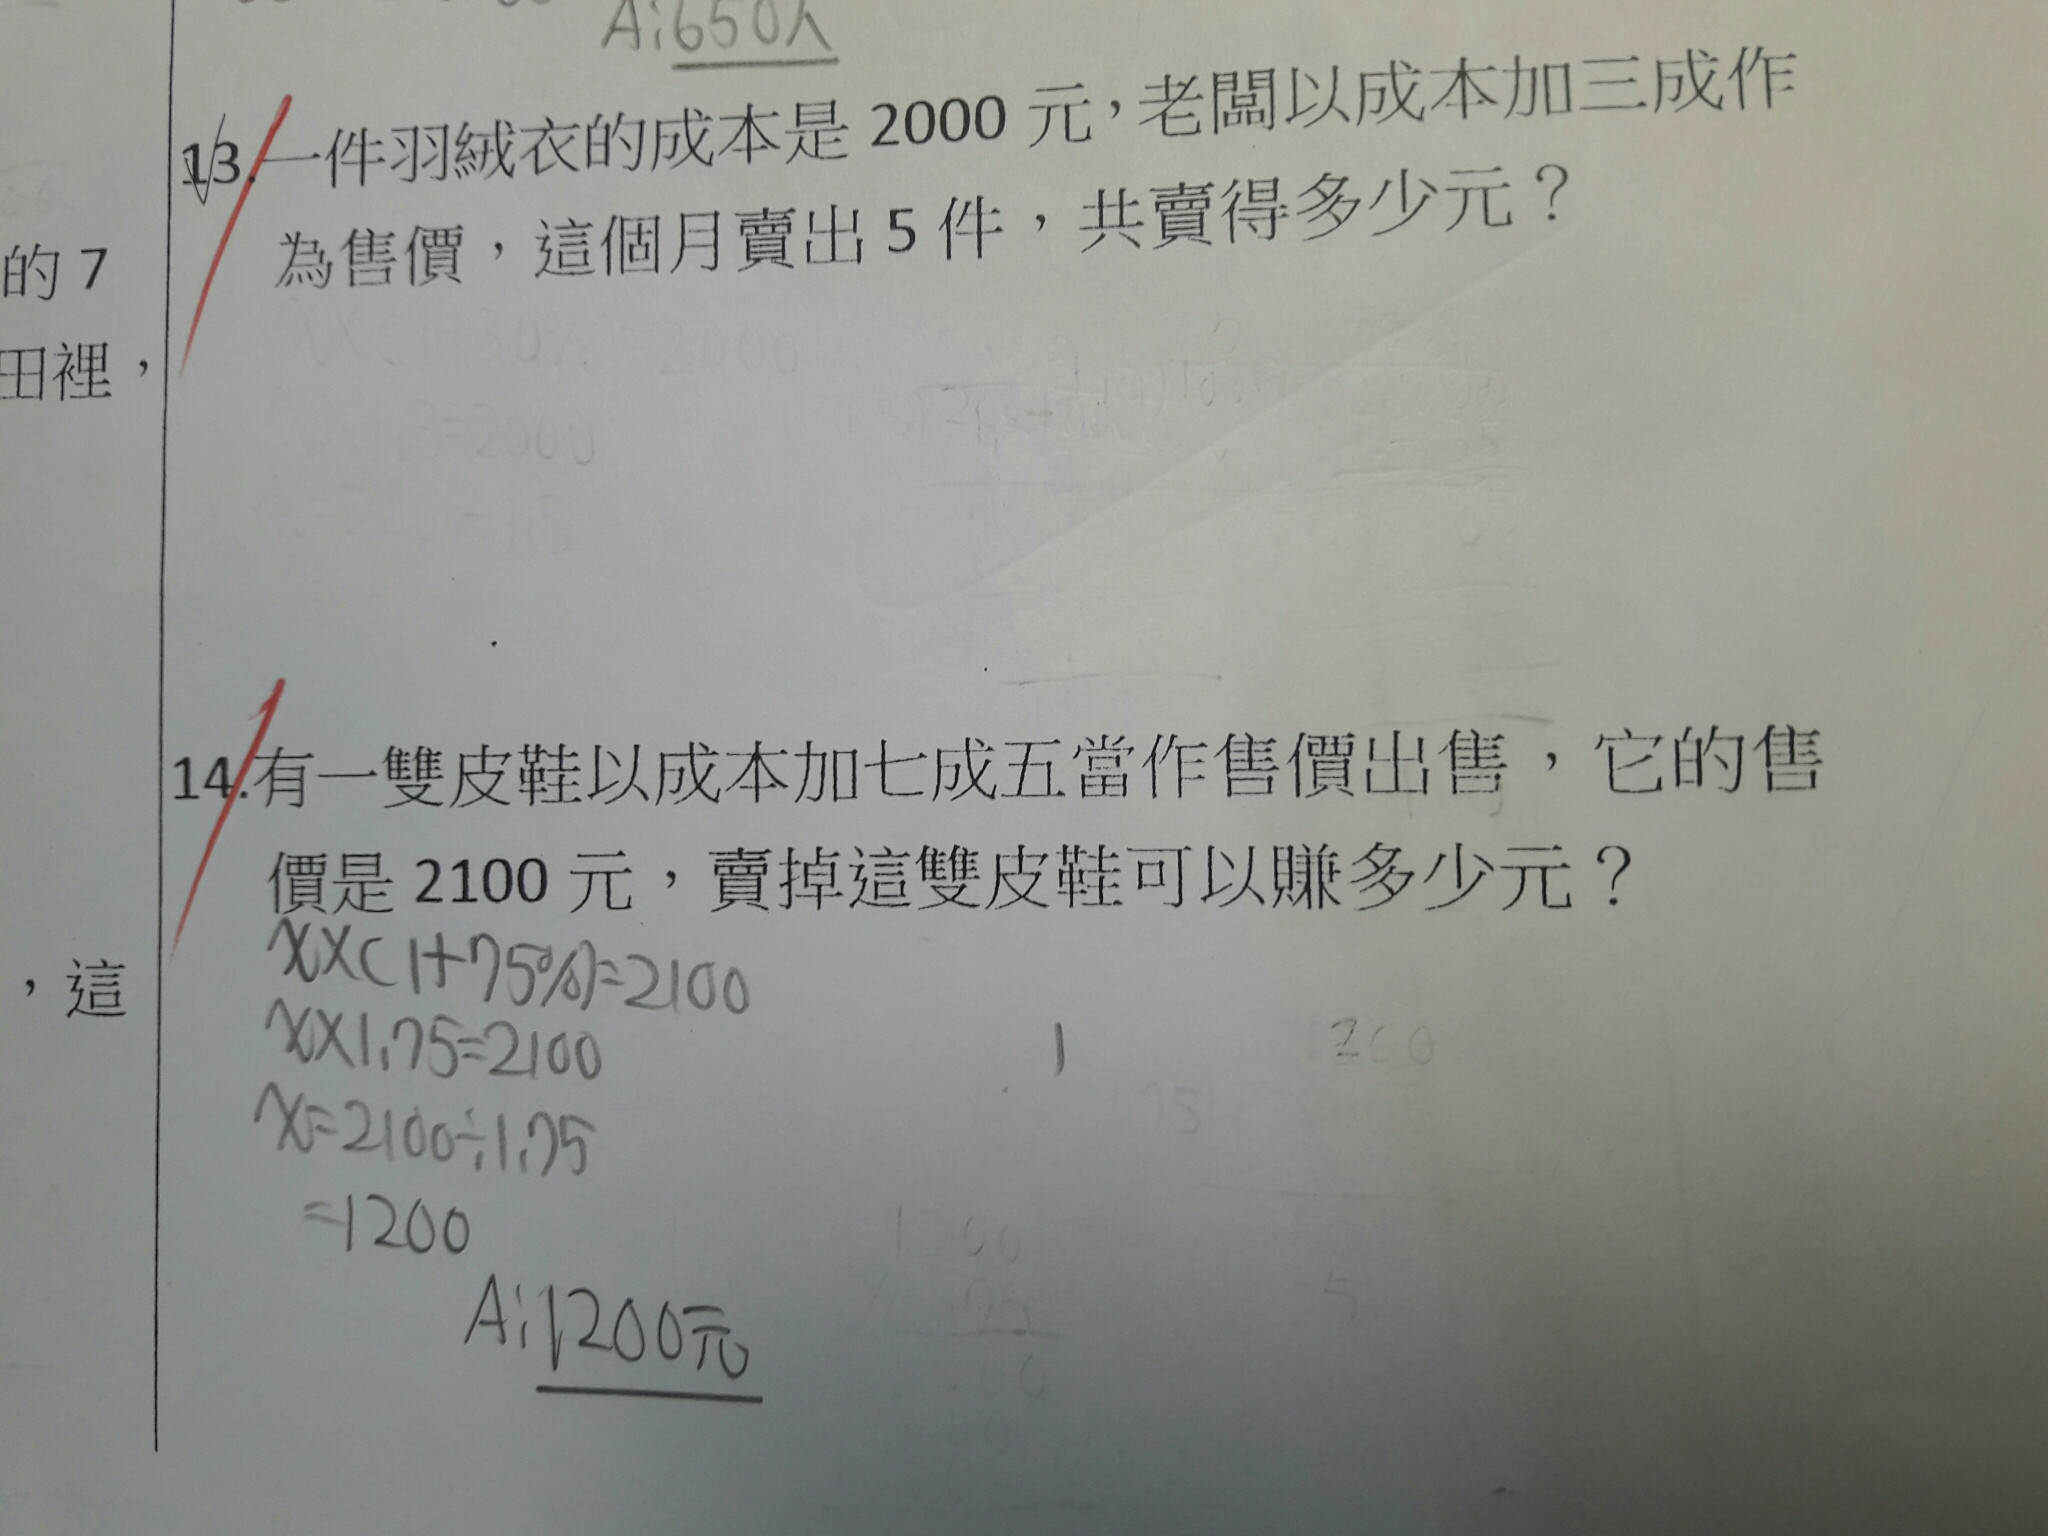 A:650人
13.一件羽絨衣的成本是 2000 元，老闆以成本加三成作
為售價，這個月賣出 5 件，共賣得多少元？
的 7
田裡，
14.有一雙皮鞋以成本加七成五當作售價出售，它的售
價是 2100 元，賣掉這雙皮鞋可以賺多少元？
，這
x×(1+75%)=2100
x×1.75=2100
x=2100÷1.75
=1200
A:1200元